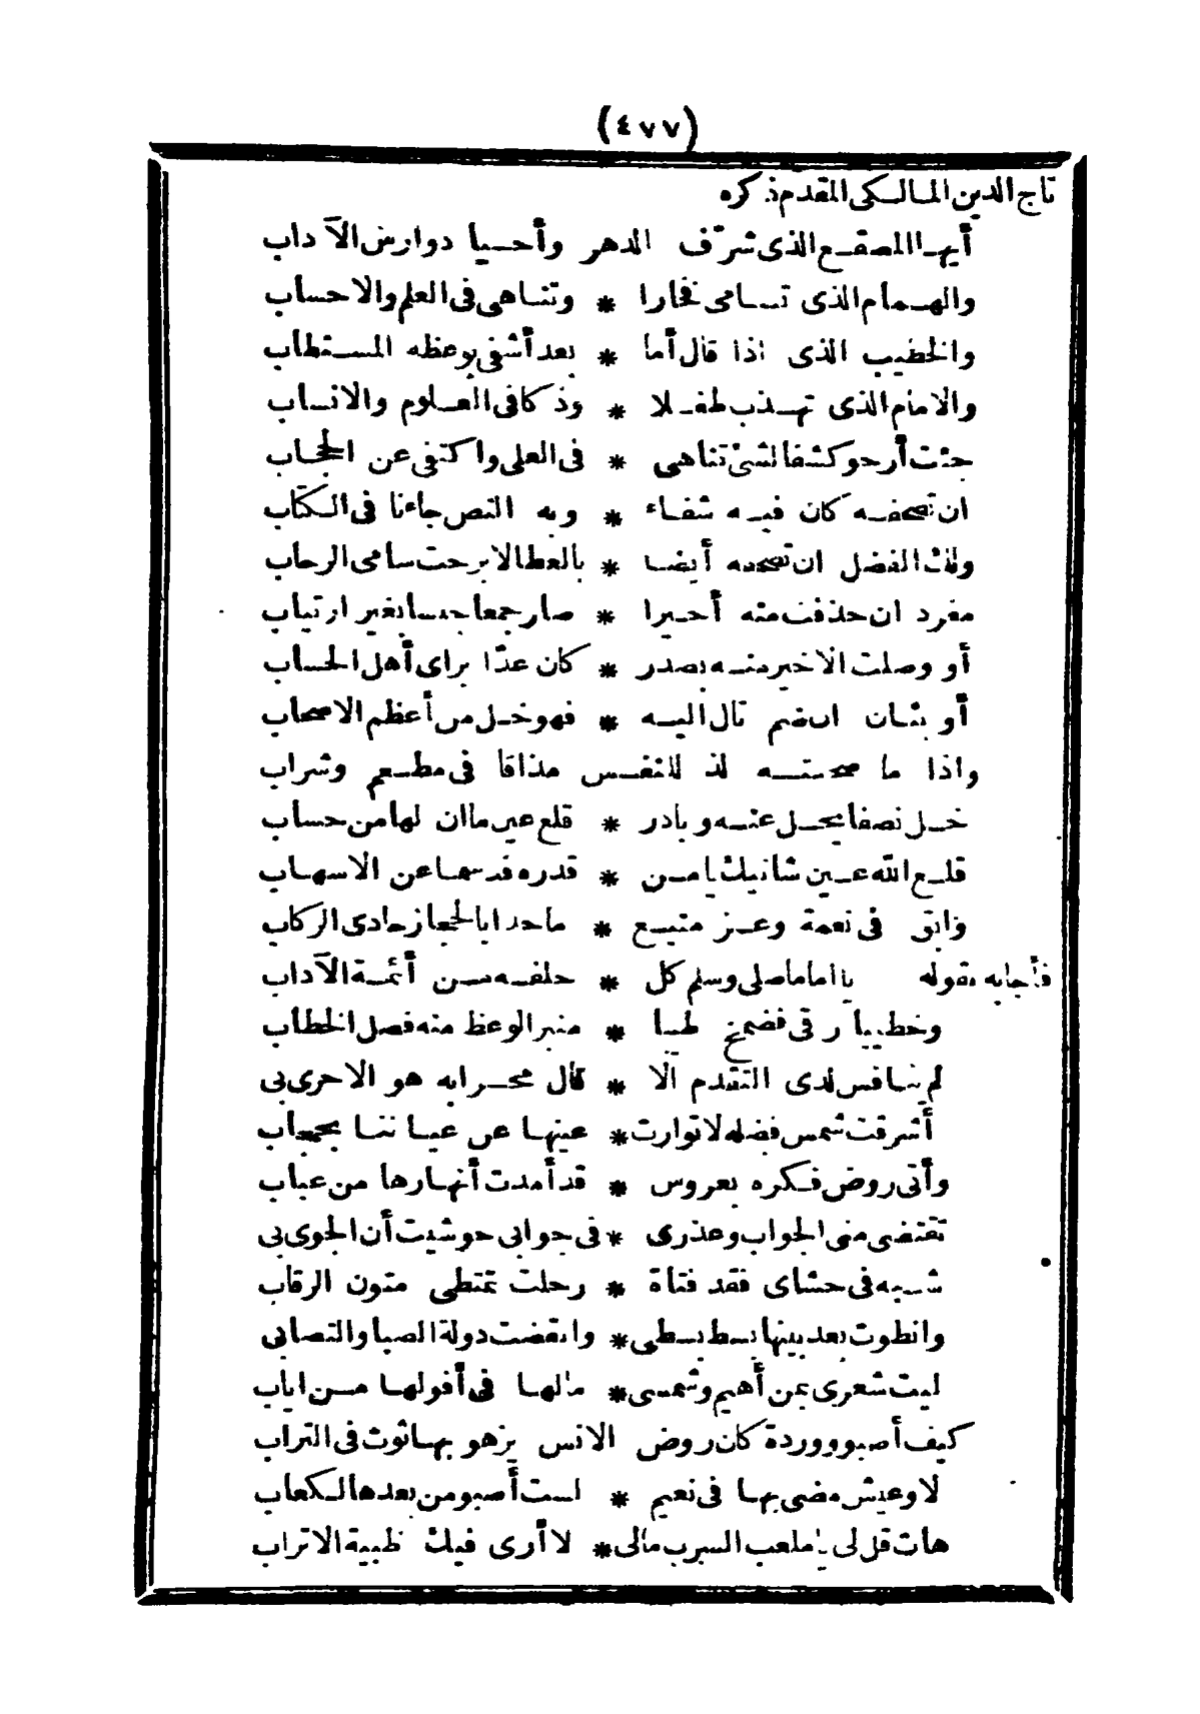 (٤٧٧)
تاج الدين المالكى المقدم ذكره
أيها المصقع الذى شرّف الدهر وأحيا دوارس الآداب
والهمام الذى تسامى فخارا * وتناهى فى العلم والاحساب
والخطيب الذى اذا قال أما * بعد أشفى بوعظه المستطاب
والامام الذى تهذب طفلا * وذكا فى العلوم والانساب
جئت أرجو كشفا لشئ تناهى * فى العلى واكتفى عن الحجاب
ان تصحفه كان فيه شفاء * وبه النص جاءنا فى الكتاب
ولك الفضل ان تصحفه أيضا * بالعطا لا برحت سامى الرحاب
مفرد ان حذفت منه أخيرا * صار جمعا جنسا بغير ارتياب
أو وصلت الاخير منه بصدر * كان عدّا براى أهل الحساب
أو بثان ان ضم تال اليه * فهو خل من أعظم الاصحاب
واذا ما صحبته لذ للنفس مذاقا فى مطعم وشراب
خل نصفا يحل عنه وبادر * قلع عين ما ان لها من حساب
قلع الله عين شانيك يا من * قدره قد سما عن الاسهاب
وابق فى نعمة وعز منيع * ما حدا بالحجاز حادى الركاب
فأجابه بقوله يا اماما صلى وسلم كل * خلفه من أئمة الآداب
وخطيبا رقى فضمخ طيبا * منبر الوعظ منه فصل الخطاب
لم ينافس لدى التقدم الا * قال محرابه هو الاحرى بى
أشرقت شمس فضله لا توارت * عينها عن عياننا بحجاب
وأتى روض فكره بعروس * قد أمدت أنهارها من عباب
تقتضى منى الجواب وعذرى * فى جوابى حوشيت أن الجوى بى
شب فى حشاى فقد فتاة * رحلت تمتطى متون الرقاب
وانطوت بعد بينها بسط بسطى * وانقضت دولة الصبا والتصابى
ليت شعرى بمن أهيم وشمسى * مالها فى أفولها من اياب
كيف أصبو ووردة كان روض الانس يزهو بها ثوت فى التراب
لا وعيش مضى بها فى نعيم * لست أصبو من بعدها لكعاب
هات قل لى يا ملعب السرب مالى * لا أرى فيك ظبية الاتراب